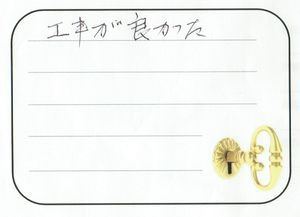 工事が良かった